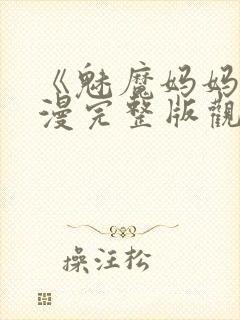 《魅魔妈妈
漫完整版觀
操汪松